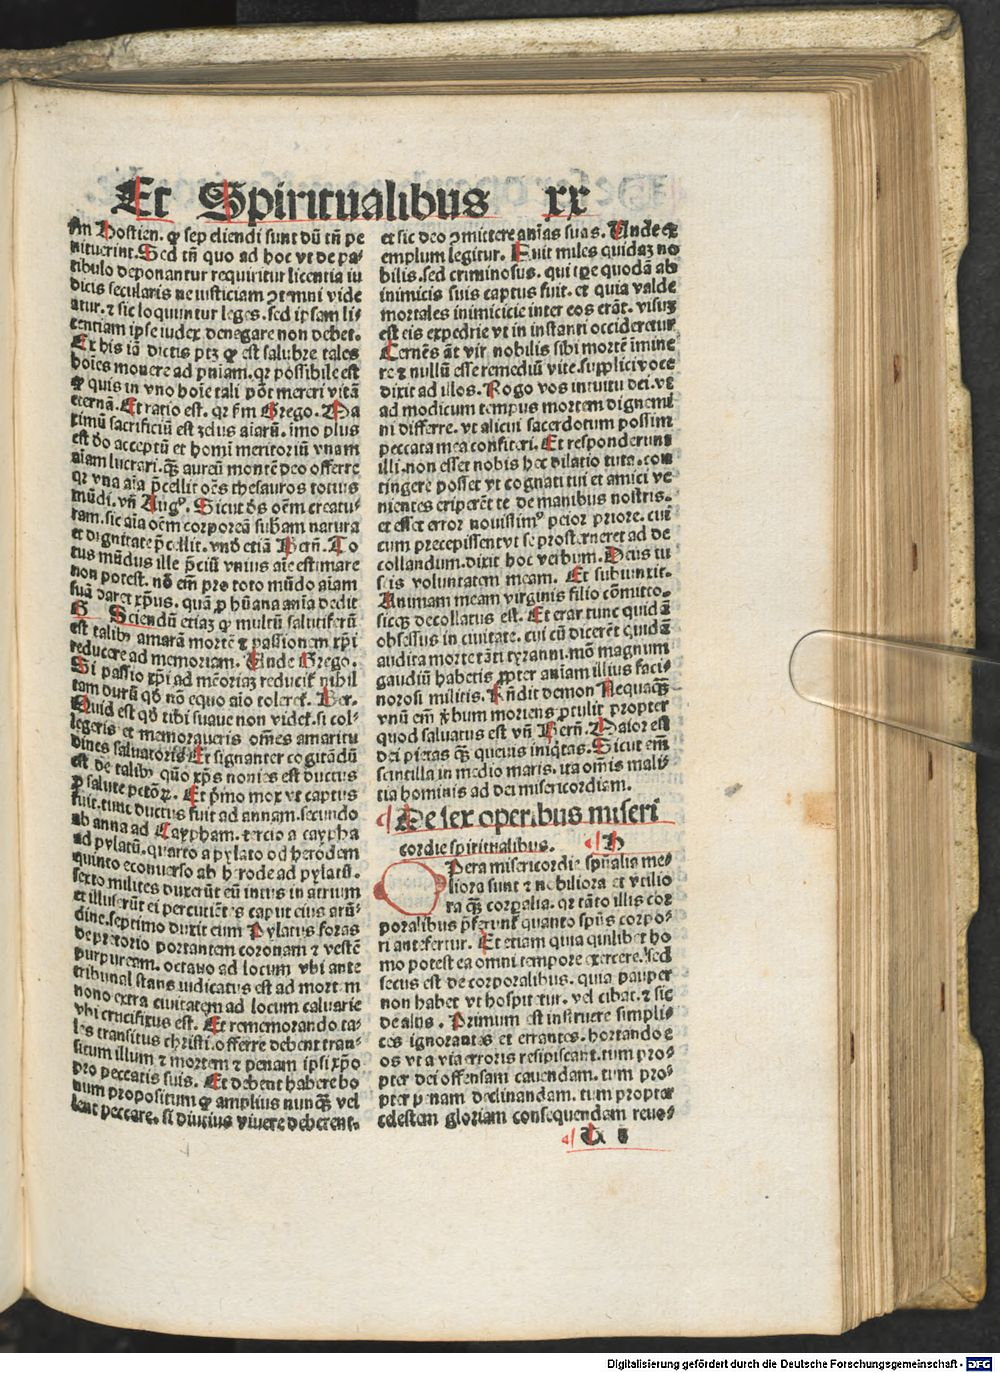 Et Spiritualibus xx
An Hostien. ꝙ sepeliendi sunt dū tñ pe
nituerint. Sed tñ quo ad hoc vt de pa⸗
tibulo deponantur requiritur licentia iu
dicis secularis ne iusticiam ꝯtemni vide
atur. ⁊ sic loquuntur leges. sed ipsam li⸗
centiam ipse iudex denegare non debet.
Ex his iā dictis ptꝫ ꝙ est salubre tales
hoīes mouere ad pniam. qꝛ possibile est
ꝙ quis in vno hoīe tali pōt mereri vitā
eternā. Et ratio est. qꝛ ẜm Grego. Ma
ximū sacrificiū est zelus aīarū. imo plus
est deo acceptū et homī meritoriū vnam
aīam lucrari. qꝫ̄ aureū montē deo offerre
qꝛ vna aīa p̄cellit oēs thesauros totius
mūdi. vñ Augꝰ. Sicut dēs oēm creatu⸗
ram. sic aīa oēm corporeā sub̄am natura
et dignitate p̄cellit. vnde etiā Bern̄. To
tus mūdus ille p̄ciū vnius aīe estimare
non potest. nō em̄ pro toto mūdo aīam
suā daret xp̄us. quā ꝓ hūana anīa dedit
G Sciendū etiaꝫ ꝙ multū salutiferū
est talibꝰ amarā mortē ⁊ passionem xp̄i
reducere ad memoriam. Unde Grego.
Si passio xp̄i ad mēoriaꝫ reducit᷑ nihil
tam durū qd̄ nō equo aīo toleret᷑. Ber.
Quid est qd̄ tibi suaue non videt᷑. si col⸗
legeris et memoraueris om̄es amaritu
dines saluatoris Et signanter cogitādū
est de talibꝰ quō xp̄s nonies est ductus
ꝓ salute petōꝝ. Et p̄mo mox vt captus
fuit. tunc ductus fuit ad annam. secundo
ab anna ad Caypham. tercio a caypha
ad pylatū. quarto a pylato ad herodem
quinto econuerso ab herode ad pylatū.
sexto milites duxerūt eū intus in atrium
et illuserūt ei percutiētes caput eius arū⸗
dine. septimo duxit eum Pylatus foras
de pretorio portantem coronam ⁊ vestē
purpuream. octauo ad locum vbi ante
tribunal stans iudicatus est ad mortem
nono extra ciuitatem ad locum caluarie
vbi crucifixus est. Et rememorando ta⸗
les transitus christi. offerre debent tran⸗
situm illum ⁊ mortem ⁊ penam ipsi xp̄o
pro peccatis suis. Et debent habere bo
num propositum ꝙ amplius nunqꝫ̄ vel
lent peccare. si diutius viuere deberent.
et sic deo ꝯmittere anīas suas. Unde ex
emplum legitur. Fuit miles quidaꝫ no
bilis. sed criminosus. qui tꝑe quodā ab
inimicis suis captus fuit. et quia valde
mortales inimicicie inter eos erāt. visuꝫ
est eis expedire vt in instanti occideretur
Cernēs āt vir nobilis sibi mortē imine
re ⁊ nullū esse remediū vite. supplici voce
dixit ad illos. Rogo vos intuitu dei. vt
ad modicum tempus mortem dignemi
ni differre. vt alicui sacerdotum possim
peccata mea confiteri. Et responderunt
illi. non esset nobis hec dilatio tuta. con
tingere posset vt cognati tui et amici ve
nientes eriperēt te de manibus nostris.
et esset error nouissimꝰ peior priore. cui
cum precepissent vt se prosterneret ad de
collandum. dixit hoc verbum. Deus tu
scis voluntatem meam. Et subiunxit.
Animam meam virginis filio cōmitto.
sicqꝫ decollatus est. Et erat tunc quidā
obsessus in ciuitate. cui cū dicerēt quidā
audita morte tāti tyranni. mō magnum
gaudiū habetis ꝓpter anīam illius faci⸗
norosi militis. Rn̄dit demon Nequaqꝫ̄
vnū em̄ ꝟbum moriens ꝓtulit propter
quod saluatus est vñ Bern̄. Maior est
dei pietas qꝫ̄ queuis iniqtas. Sicut em̄
scintilla in medio maris. ita om̄is mali⸗
tia hominis ad dei misericordiam.
De sex operibus miseri
cordie spiritualibus. H
Pera misericordie spūalia me⸗
liora sunt ⁊ nobiliora et vtilio
ra qꝫ̄ corꝑalia. qꝛ tāto illis cor
poralibus p̄ferunt᷑ quanto spūs corpo⸗
ri antefertur. Et etiam quia quilibet ho
mo potest ea omni tempore exercere. sed
secus est de corporalibus. quia pauper
non habet vt hospitetur. vel cibat. ⁊ sic
de alijs. Primum est instruere simpli⸗
ces ignorantes et errantes. hortando e
os vt a via erroris resipiscant. tum pro⸗
pter dei offensam cauendam. tum pro⸗
pter penam declinandam. tum propter
celestem gloriam consequendam reuo⸗
Digitalisierung gefördert durch die Deutsche Forschungsgemeinschaft - DFG